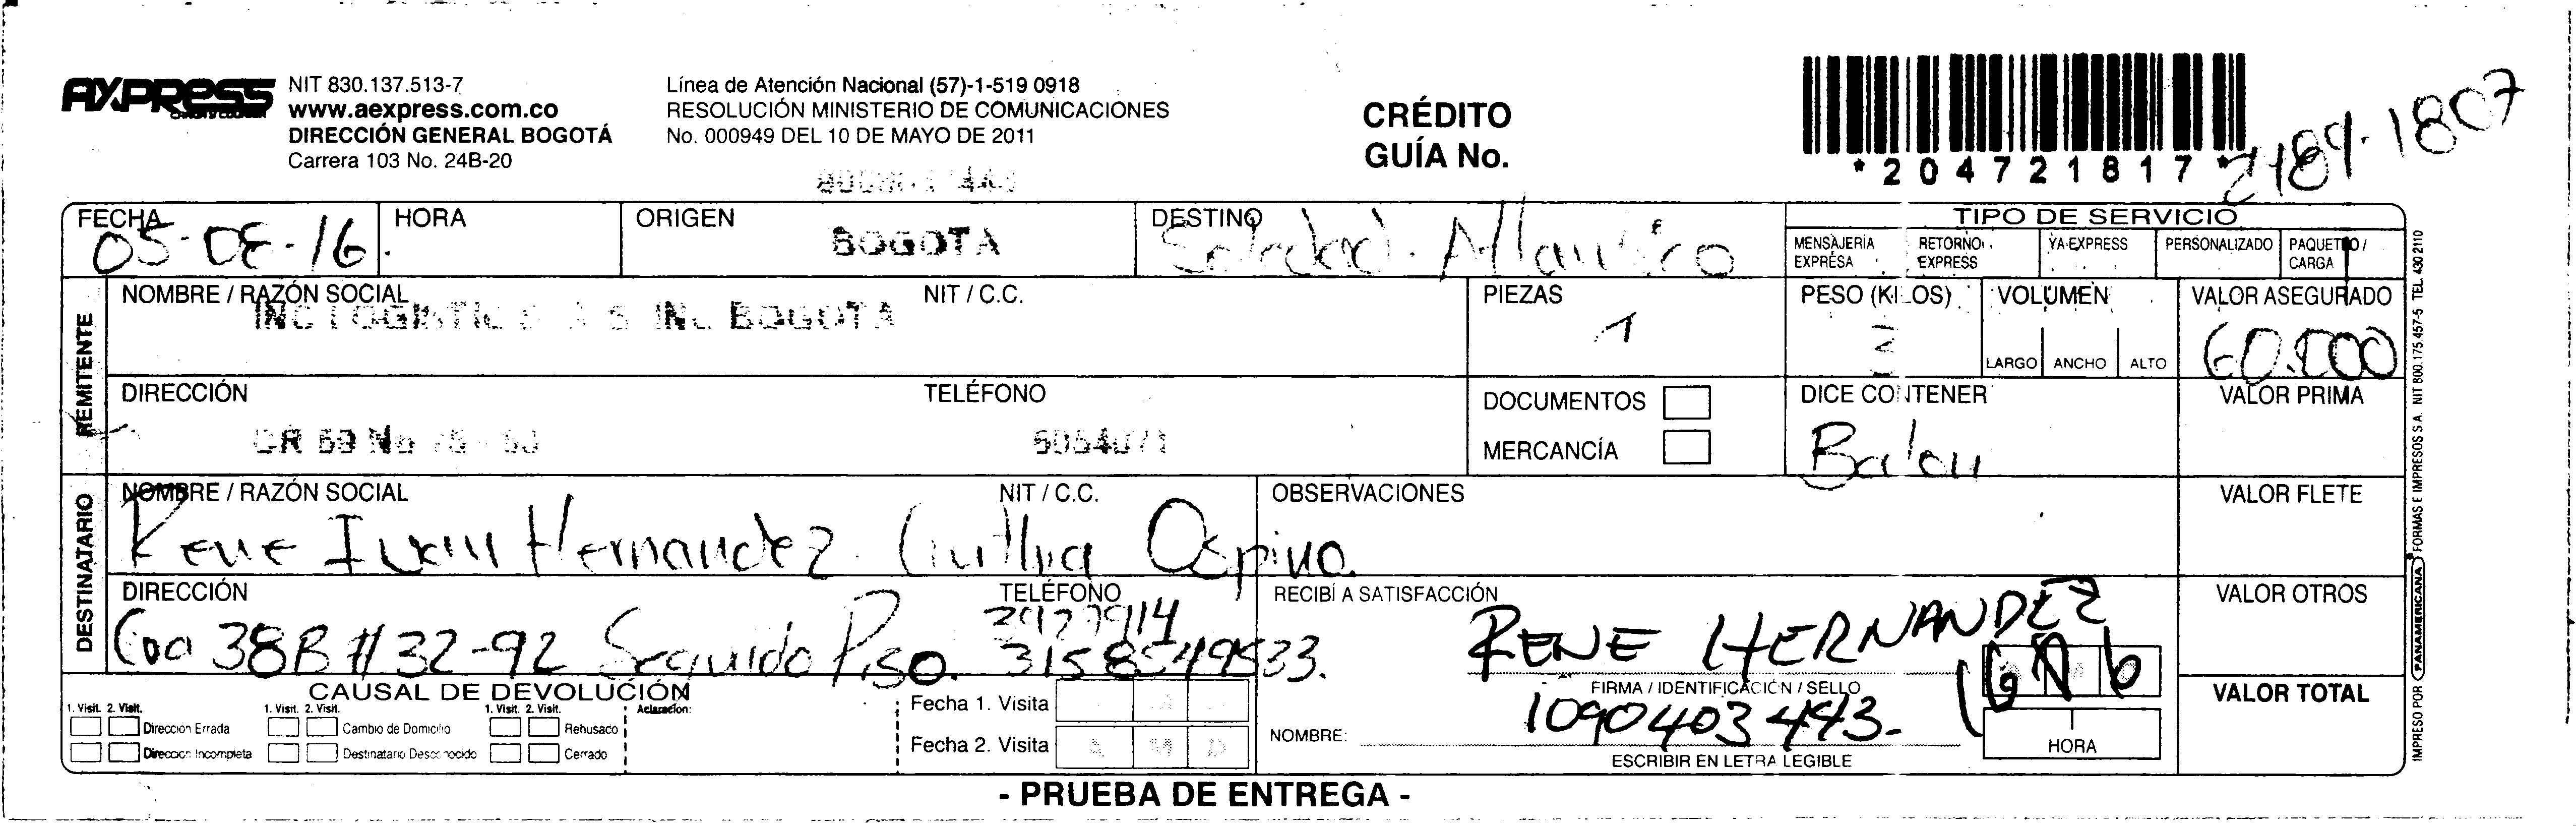 AXPRESS
NIT 830.137.513-7
www.aexpress.com.co
DIRECCIÓN GENERAL BOGOTÁ
Carrera 103 No. 24B-20
Línea de Atención Nacional (57)-1-519 0918
RESOLUCIÓN MINISTERIO DE COMUNICACIONES
No. 000949 DEL 10 DE MAYO DE 2011
CRÉDITO
GUÍA No.
*204721817*
2189-1807
FECHA 05-08-16
HORA
ORIGEN BOGOTA
DESTINO Soledad. Atlantico
TIPO DE SERVICIO
MENSAJERIA EXPRESA
RETORNO EXPRESS
YA EXPRESS
PERSONALIZADO
PAQUETEO / CARGA
REMITENTE
NOMBRE / RAZÓN SOCIAL
NIT / C.C.
INC LOGISTIC S A S INL BOGOTA
PIEZAS
1
PESO (KILOS)
VOLUMEN
LARGO ANCHO ALTO
VALOR ASEGURADO
60.000
DIRECCIÓN
TELÉFONO
DOCUMENTOS
MERCANCÍA
DICE CONTENER
Balon
VALOR PRIMA
DESTINATARIO
NOMBRE / RAZÓN SOCIAL
NIT / C.C.
Rene Ivan Hernandez Ospina
OBSERVACIONES
VALOR FLETE
DIRECCIÓN
38B # 32-92 Segundo Piso.
TELÉFONO
3158549533.
RECIBÍ A SATISFACCIÓN
RENE HERNANDEZ
FIRMA / IDENTIFICACIÓN / SELLO
1090403443-
NOMBRE:
ESCRIBIR EN LETRA LEGIBLE
HORA
VALOR OTROS
VALOR TOTAL
CAUSAL DE DEVOLUCIÓN
1. Visit. 2. Visit.
1. Visit. 2. Visit.
1. Visit. 2. Visit.
Aclaración:
Dirección Errada
Cambio de Domicilio
Rehusado
Dirección Incompleta
Destinatario Desconocido
Cerrado
Fecha 1. Visita
Fecha 2. Visita
A M D
- PRUEBA DE ENTREGA -
IMPRESO POR PANAMERICANA FORMAS E IMPRESOS S.A. NIT 800.175.457-5 TEL. 430 2110